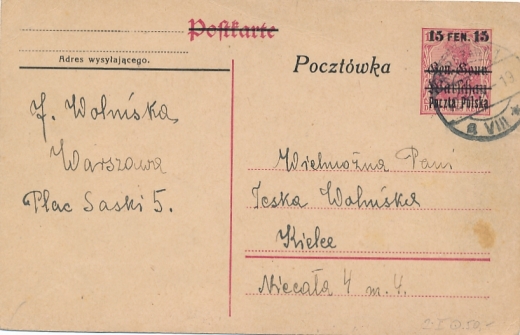 Postkarte
Adres wysyłającego.
Pocztówka
15 FEN. 15
Gen.-Gouv.
Warschau
Poczta Polska
8 VIII *
19
J. Wolińska
Warszawa
Plac Saski 5.
Wielmożna Pani
Wolińska
Kielce
Niecała 4 m. 4.